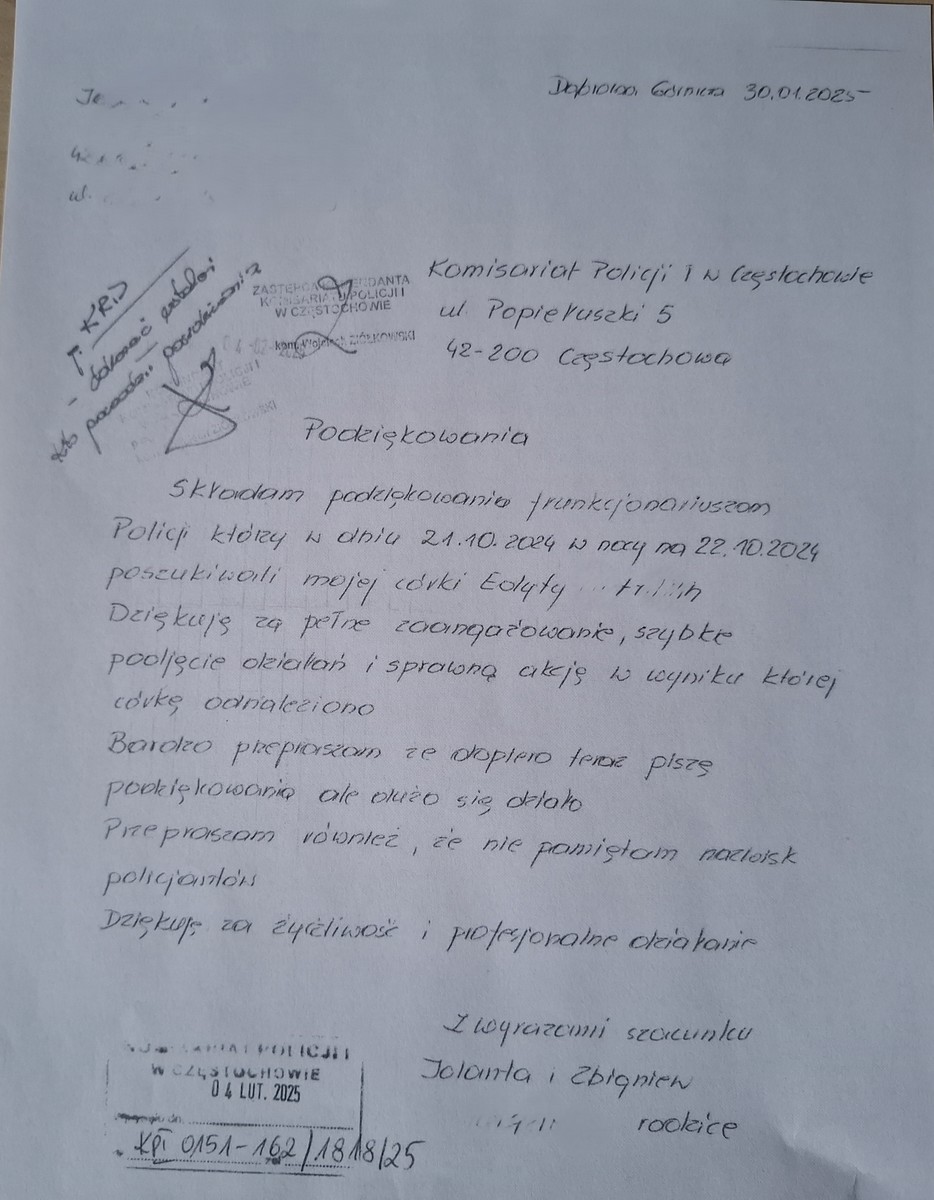 Dąbrowa Górnicza 30.01.2025
ul.
Komisariat Policji I w Częstochowie
ul. Popiełuszki 5
42-200 Częstochowa
ZASTĘPCA KOMENDANTA
KOMISARIATU POLICJI I
W CZĘSTOCHOWIE
kom. Wojciech ZIÓŁKOWSKI
- dokonać ustaleń
kto
Podziękowania
Składam podziękowania funkcjonariuszom
Policji którzy w dniu 21.10.2024 w nocy na 22.10.2024
poszukiwali mojej córki Edyty
Dziękuję za pełne zaangażowanie, szybkie
podjęcie działań i sprawną akcję w wyniku której
córkę odnaleziono
Bardzo przepraszam że dopiero teraz piszę
podziękowania ale dużo się działo
Przepraszam również, że nie pamiętam nazwisk
policjantów
Dziękuję za życzliwość i profesjonalne działanie
Z wyrazami szacunku
Jolanta i Zbigniew
rodzice
KOMISARIAT POLICJI I
W CZĘSTOCHOWIE
04 LUT. 2025
KPI 0151-162/1818/25